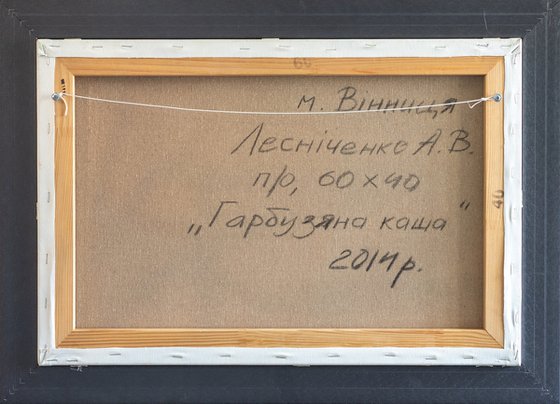 60
м. Вінниця
Лесніченко А.В.
п/о, 60х40
40
„Гарбузяна каша"
2014р.